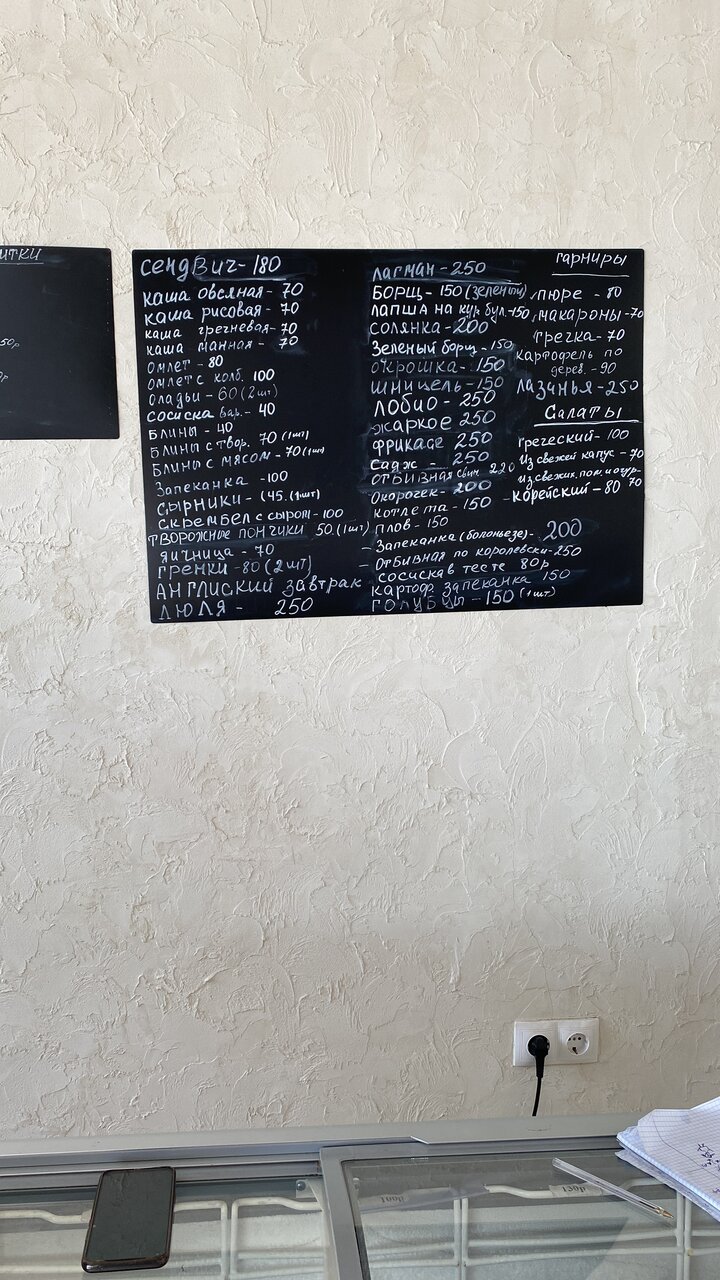 итки
50р
р
Сендвич - 180
каша овсяная - 70
каша рисовая - 70
каша гречневая - 70
каша манная - 70
омлет - 80
омлет с колб. 100
оладьи - 60 (2шт)
сосиска вар. - 40
Блины - 40
Блины с твор. 70 (1шт)
Блины с мясом - 70 (1шт)
Запеканка - 100
Сырники - (45. (1шт)
Скрембел с сыром - 100
творожные пончики 50. (1шт)
яичница - 70
гренки - 80 (2шт)
Англиский завтрак
Люля - 250
Лагман - 250
Борщ - 150
Лапша на кур. бул. - 150
Солянка - 200
Зеленый борщ. - 150
окрошка - 150
шницель - 150
Лобио - 250
жаркое 250
фрикасе 250
Садж - 250
отбивная свин 220
Окорочек - 200
котлета - 150
плов - 150
- Запеканка (болоньезе) - 200
- Отбивная по королевски - 250
- сосиска в тесте 80р
картоф. запеканка 150
голубцы - 150 (1шт)
гарниры
пюре - 80
макароны - 70
гречка - 70
картофель по
дерев. - 90
Лазанья - 250
Салаты
греческий - 100
Из свежей капус - 70
из свежих пом и огур - 70
- корейский - 80